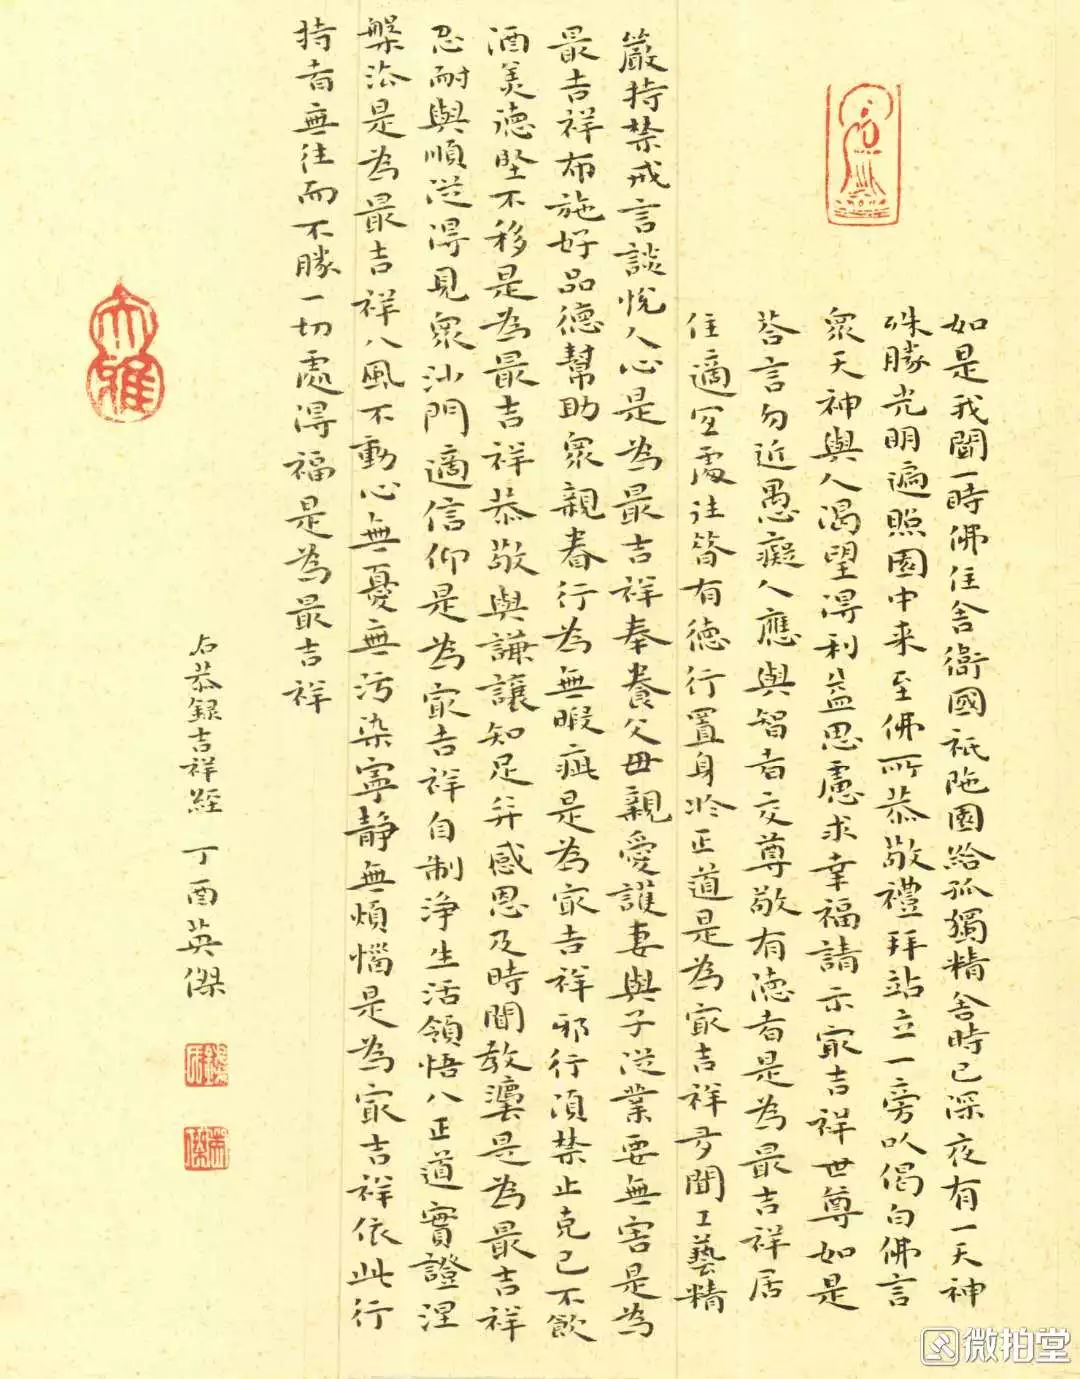 如是我聞一時佛住舍衛國祇陁園給孤獨精舍時已深夜有一天神
殊勝光明遍照園中来至佛所恭敬禮拜站立一旁以偈白佛言
衆天神與人渴望得利益思慮求幸福請示最吉祥世尊如是
荅言勿近愚癡人應與智者交尊敬有德者是為最吉祥居
住適宜處往昔有德行置身於正道是為最吉祥多聞工藝精
嚴持禁戒言談悅人心是為最吉祥奉養父母親愛護妻與子從業要無害是為
最吉祥布施好品德幫助衆親眷行為無瑕疵是為最吉祥邪行須禁止克己不飲
酒美德堅不移是為最吉祥恭敬與謙讓知足并感恩及時聞教讓是為最吉祥
忍耐與順從得見衆沙門適信仰是為最吉祥自制淨生活領悟八正道實證涅
槃法是為最吉祥八風不動心無憂無污染寧静無煩惱是為最吉祥依此行
持者無往而不勝一切處得福是為最吉祥
右恭錄吉祥經 丁酉英傑
大雅
微拍堂